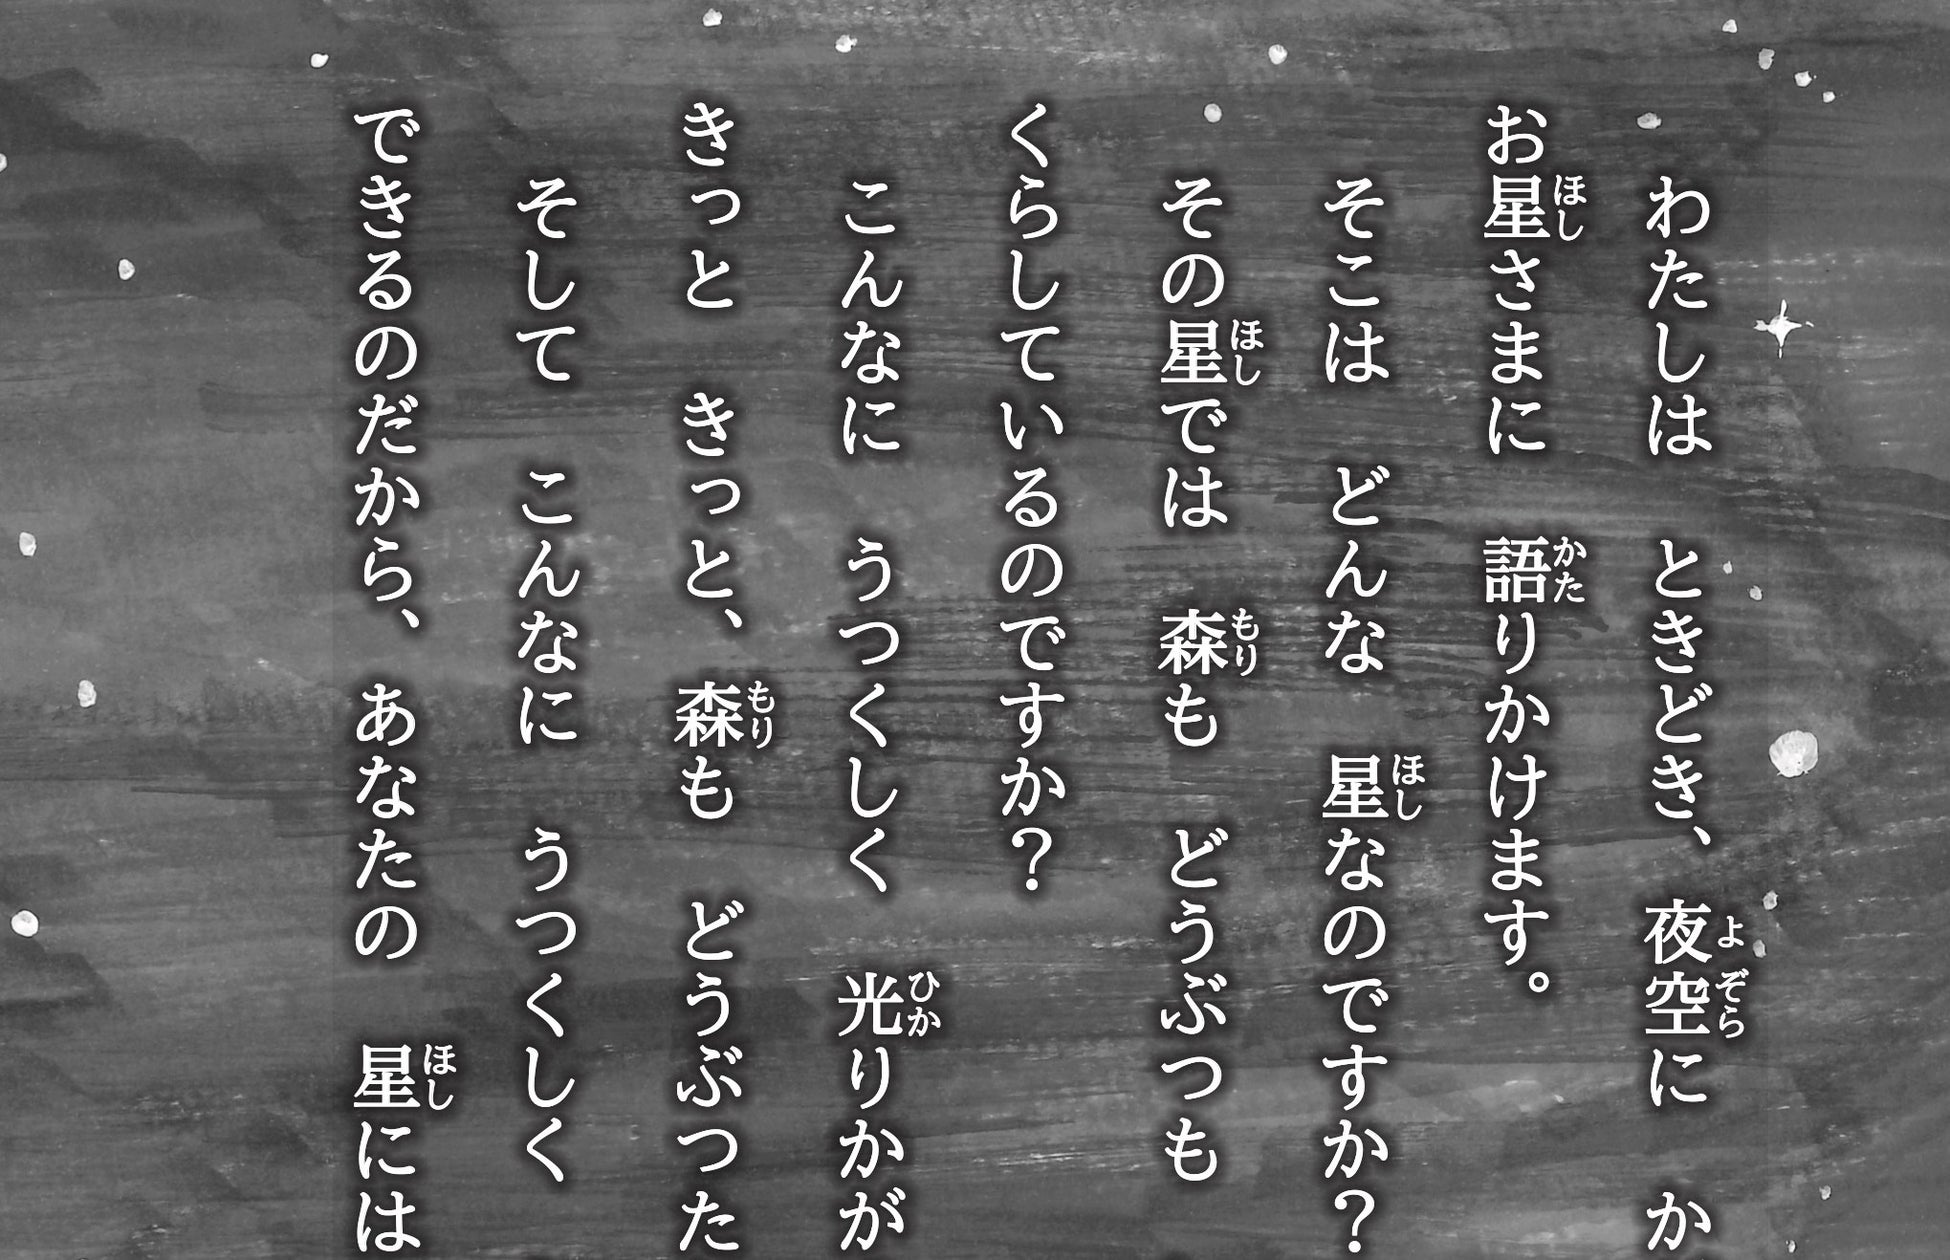 わたしは　ときどき、夜空に　か
お星さまに　語りかけます。
そこは　どんな　星なのですか？
その星では　森も　どうぶつも
くらしているのですか？
こんなに　うつくしく　光りかが
きっと　きっと、森も　どうぶつた
そして　こんなに　うつくしく
できるのだから、あなたの　星には